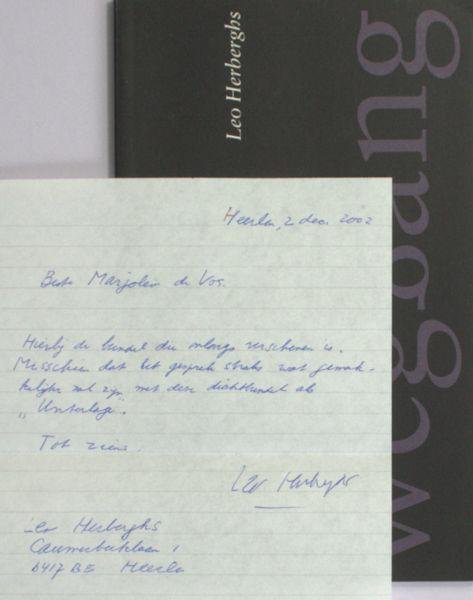 Leo Herberghs
weggang
Heerlen, 2 dec. 2002
Beste Marjolein de Vos.
Hierbij de bundel die onlangs verschenen is.
Misschien dat het gesprek straks wat gemak-
kelijker zal zijn, met deze dichtbundel als
„Unterlage".
Tot ziens.
Leo Herberghs
Leo Herberghs
Caumerbeeklaan 1
6417 BE Heerlen